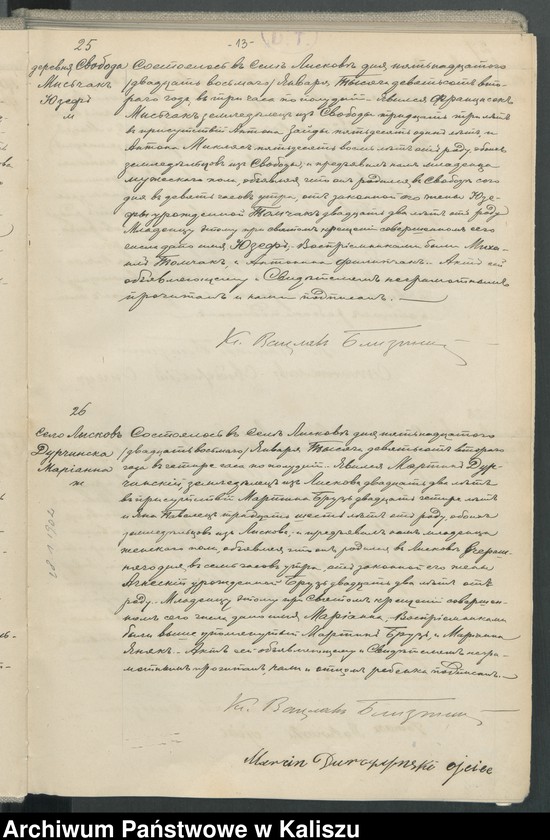 -13-
25
деревня Свобода
Мисьчакъ
Юзефъ
м
Состоялось въ Селѣ Лисковѣ дня пятьнадцатаго
/двадцать восьмаго/ Января, Тысяча девятьсотъ вто-
раго года, въ три часа по полудни. Явился Францишекъ
Мисьчакъ земледѣлецъ изъ Свободы тридцать три лѣтъ
въ присутствіи Антона Зайды пятьдесять одно лѣтъ, и
Антона пятьдесять восемь лѣтъ отъ роду, обоихъ
земледѣльцовъ изъ Свободы, и предъявилъ намъ младенца
мужескаго пола, объявляя, что онъ родился въ Свободѣ сего
дня въ девять часовъ утра, отъ законной его жены Юзе-
фы урожденной Томчакъ двадцать два лѣтъ отъ роду
Младенцу этому при святомъ крещеніи совершенномъ сего
числа дано имя Юзефъ, Воспріемниками были Миха-
илъ Томчакъ и Антонина Филипчакъ. Актъ сей
объявляющему и Свидѣтелямъ неграмотнымъ
прочитанъ и нами подписанъ.
Кс. Вацлавъ Близинскій
26
Село Лисковъ
Дурчинска
Маріанна
ж
Состоялось въ Селѣ Лисковѣ дня пятьнадцатаго
/двадцать восьмаго/ Января, Тысяча девятьсотъ втораго
года въ четыре часа по полудни. Явился Мартинъ Дур-
чинскій, земледѣлецъ изъ Лискова двадцать два лѣтъ
въ присутствіи Мартина Брузь двадцать четыре лѣтъ
и Яна тридцать шесть лѣтъ отъ роду, обоихъ
земледѣльцовъ изъ Лискова, и предъявилъ намъ младенца
женскаго пола, объявляя, что онъ родился въ Лисковѣ вчераш-
няго дня, въ семь часовъ утра, отъ законной его жены
Агнескіи урожденной Брузь двадцать два лѣтъ отъ
роду. Младенцу этому при Святомъ крещеніи совершен-
номъ сего числа дано имя Маріанна, Воспріемниками
были выше упомянутый Мартинъ Брузь, и Маріанна
Янякъ. Актъ сей объявляющему и Свидѣтелямъ негра-
мотнымъ прочитанъ, нами и отцомъ ребенка подписанъ.
Кс. Вацлавъ Близинскій
Marcin Durczynski ojciec
Archiwum Państwowe w Kaliszu